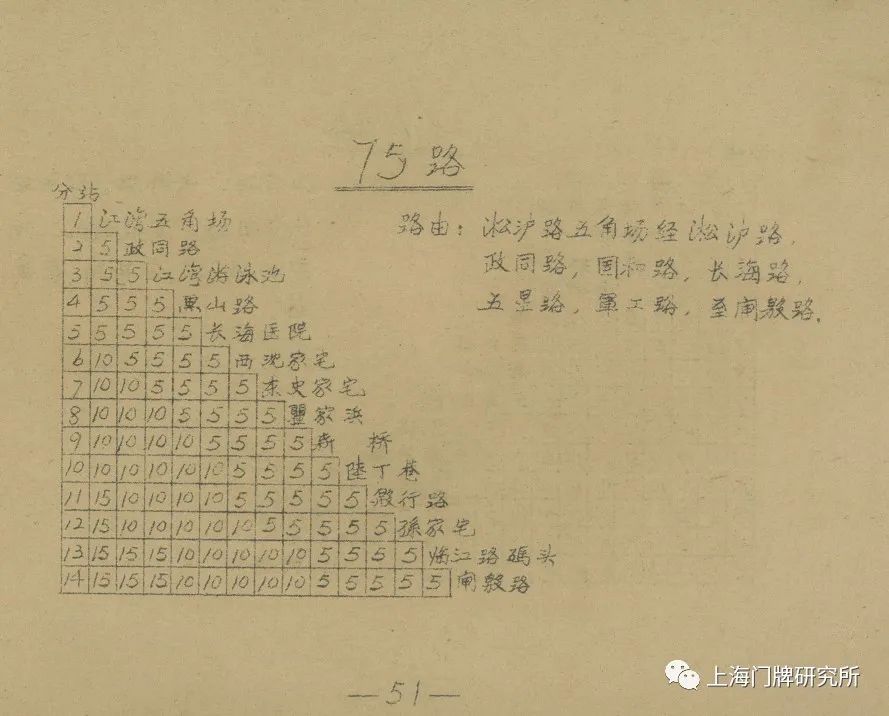 75路
分站
1 江湾五角场
2 5 政同路
3 5 5 江湾游泳池
4 5 5 5 黑山路
5 5 5 5 5 长海医院
6 10 5 5 5 5 西沈家宅
7 10 10 5 5 5 5 东史家宅
8 10 10 10 5 5 5 5 瞿家浜
9 10 10 10 10 5 5 5 5 新桥
10 10 10 10 10 10 5 5 5 5 陆丁巷
11 15 10 10 10 10 5 5 5 5 5 殷行路
12 15 10 10 10 10 10 5 5 5 5 5 孫家宅
13 15 15 15 10 10 10 10 10 5 5 5 5 临江路碼头
14 15 15 15 10 10 10 10 10 5 5 5 5 5 闸殷路
路由：淞沪路五角场经淞沪路，
政同路，国和路，长海路，
五星路，軍工路，至闸殷路.
—51—
上海门牌研究所